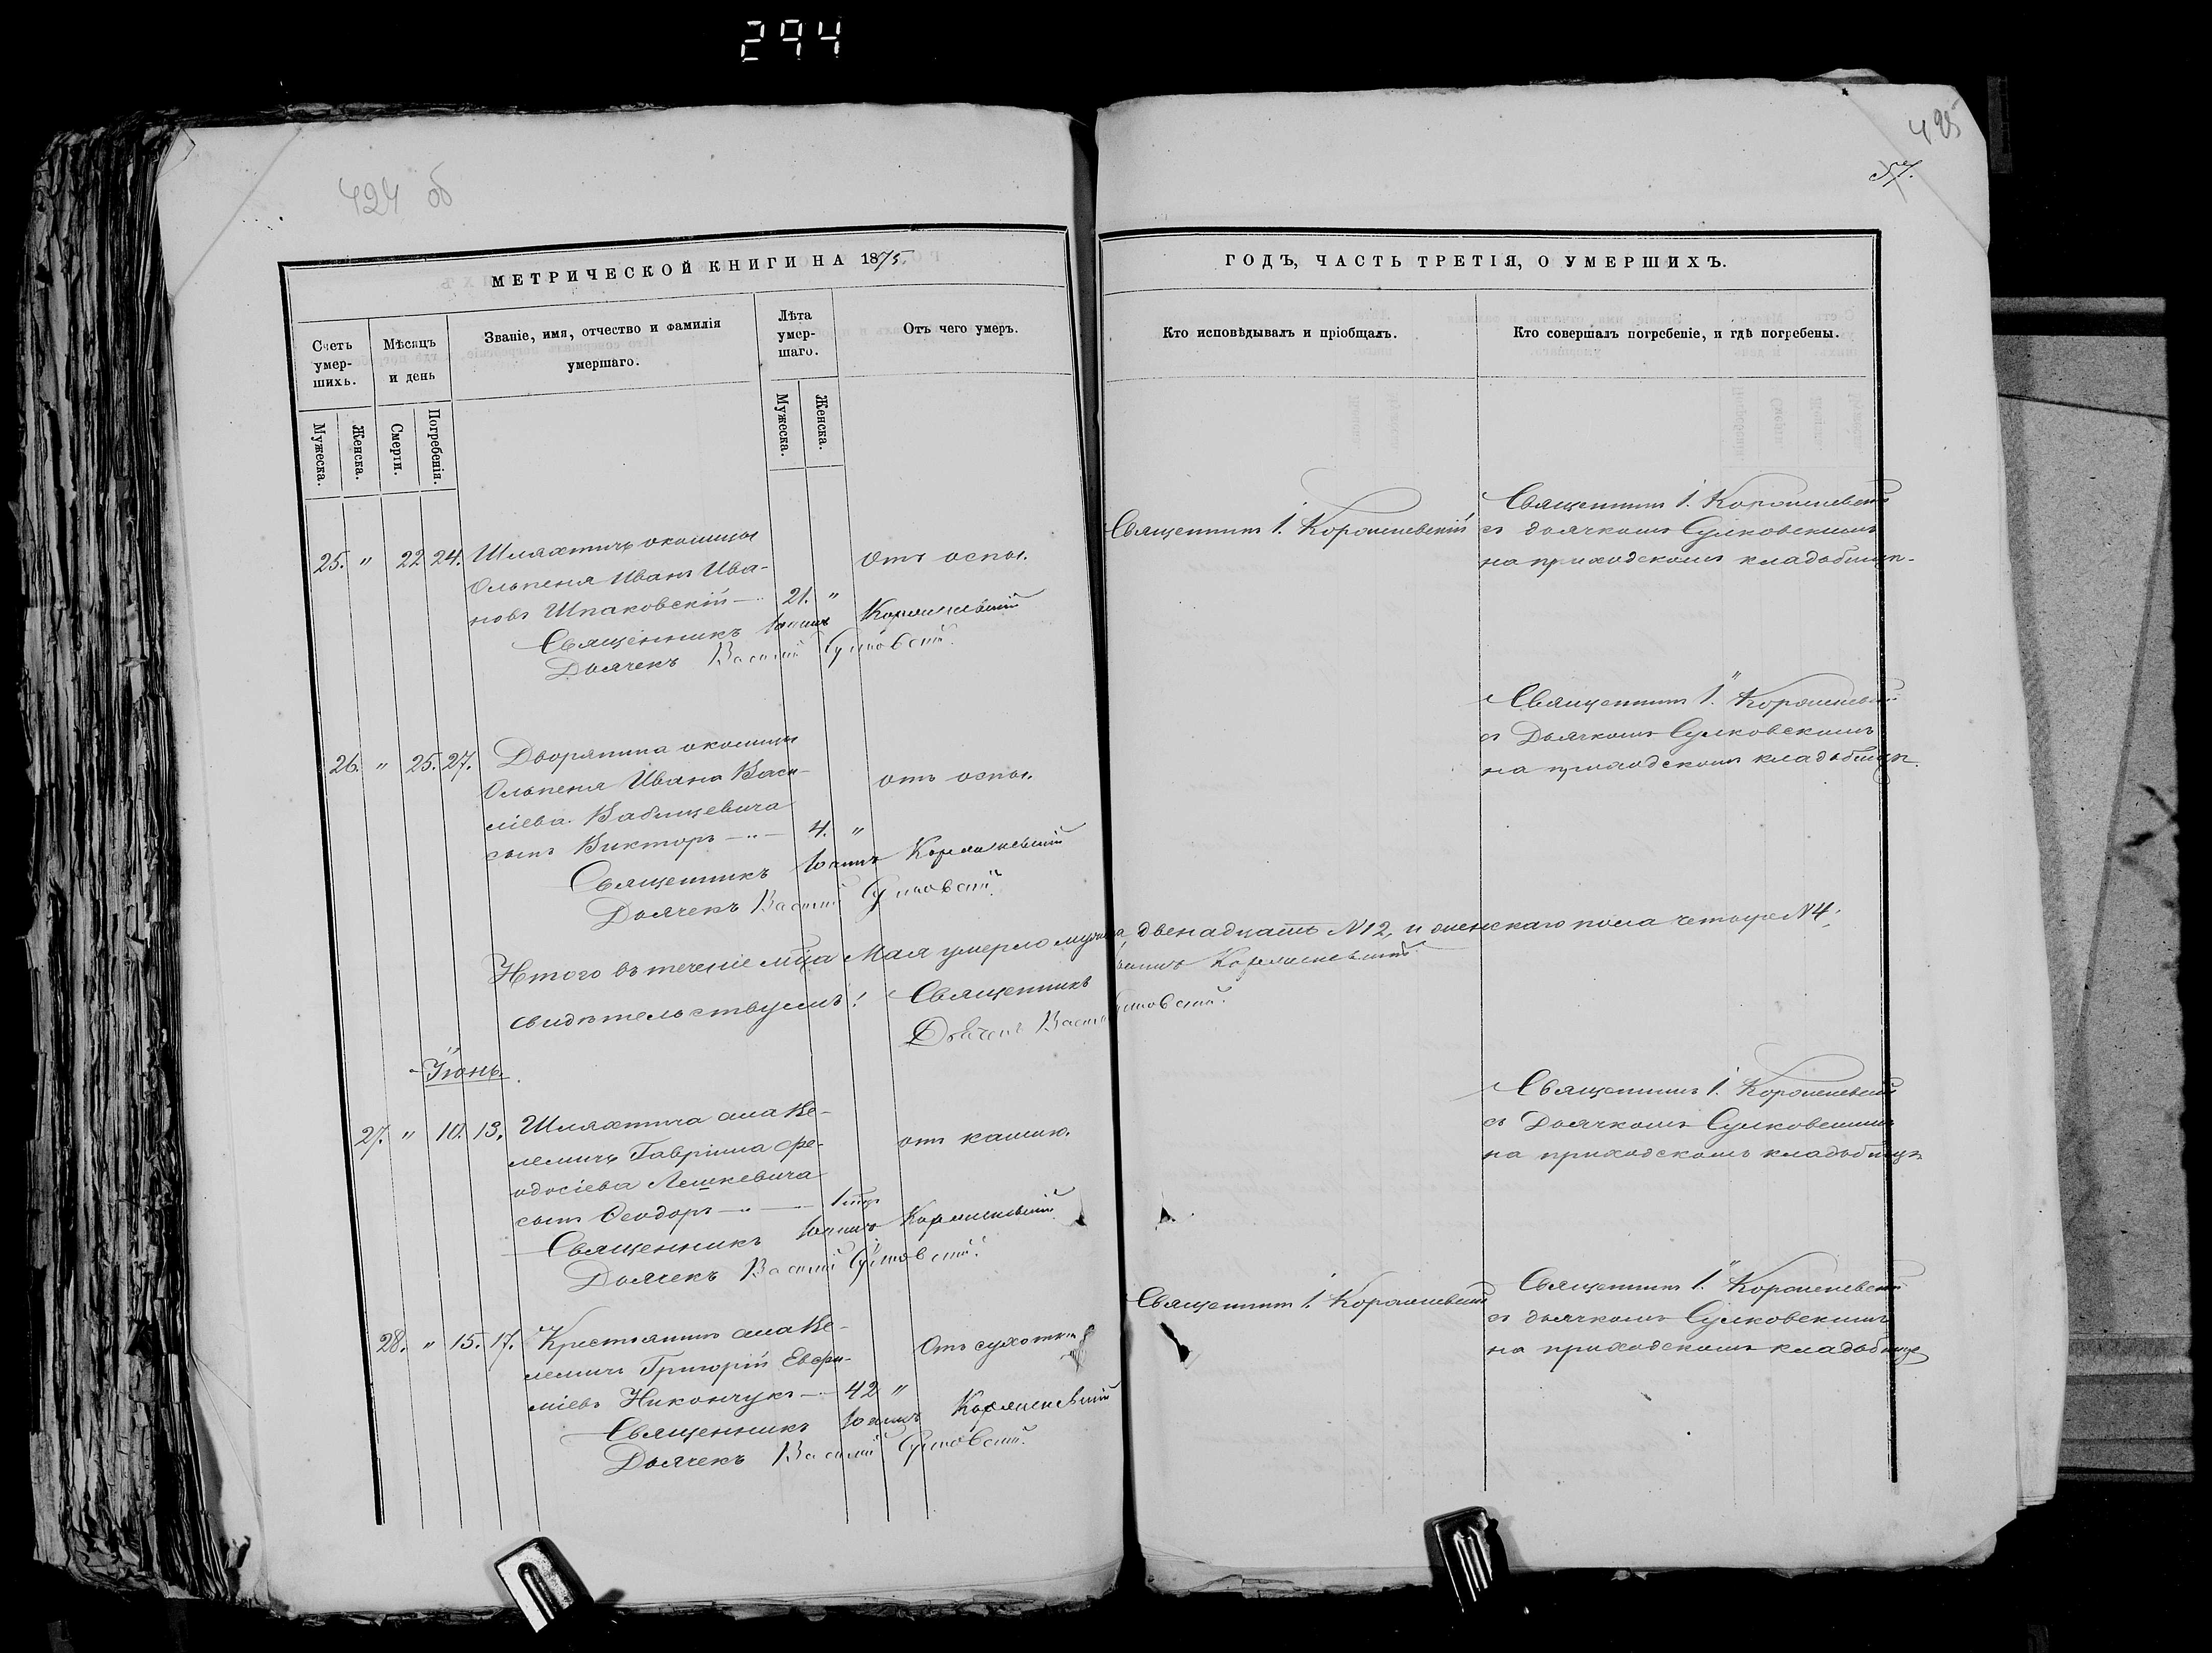 294
424 об
425
57.
МЕТРИЧЕСКОЙ КНИГИ НА 1875
ГОДЪ, ЧАСТЬ ТРЕТІЯ, О УМЕРШИХЪ.
Счетъ умер-шихъ.
Мѣсяцъ и день
Званіе, имя, отчество и фамилія
умершаго.
Лѣта умер-шаго.
Отъ чего умеръ.
Кто исповѣдывалъ и пріобщалъ.
Кто совершалъ погребеніе, и гдѣ погребены.
Мужеска.
Женска.
Смерти.
Погребенія.
Мужеска.
Женска.
25. " 22 24. Шляхтичъ околицы
Ольпеня Иванъ Ива-
новъ Шпаковскій — 21. "
отъ оспы.
Священникъ Іоаннъ
Дьячекъ Василій
Священникъ І.
Священникъ І.
съ дьячкомъ Сулковскимъ
на приходскомъ кладбищѣ.
26. " 25. 27. Дворянина околицы
Ольпеня Ивана Васи-
ліева Бабицевича
сынъ Викторъ — " — 4. "
отъ оспы.
Священникъ Іоаннъ
Дьячекъ Василій
Священникъ І.
съ Дьячкомъ Сулковскимъ
на приходскомъ кладбищѣ.
Итого въ теченіе мца Мая умерло мужеска двенадцать N12, и женскаго пола четыре N4.
свидѣтельствуемъ: Священникъ Іоаннъ
Дьячекъ Василій
Іюнь.
27. " 10. 13. Шляхтича села Ве-
лемичъ Гавріила Ѳе-
одосіева Лешкевича
сынъ Ѳеодоръ — " — 1
отъ кашлю.
Священникъ Іоаннъ
Дьячекъ Василій
Священникъ І.
съ Дьячкомъ Сулковскимъ
на приходскомъ кладбищѣ
28. " 15. 17. Крестьянинъ села Ве-
лемичъ Григорій Евфи-
міевъ Никончукъ — 42 "
Отъ сухотки
Священникъ Іоаннъ
Дьячекъ Василій
Священникъ І.
Священникъ І.
съ дьячкомъ Сулковскимъ
на приходскомъ кладбище